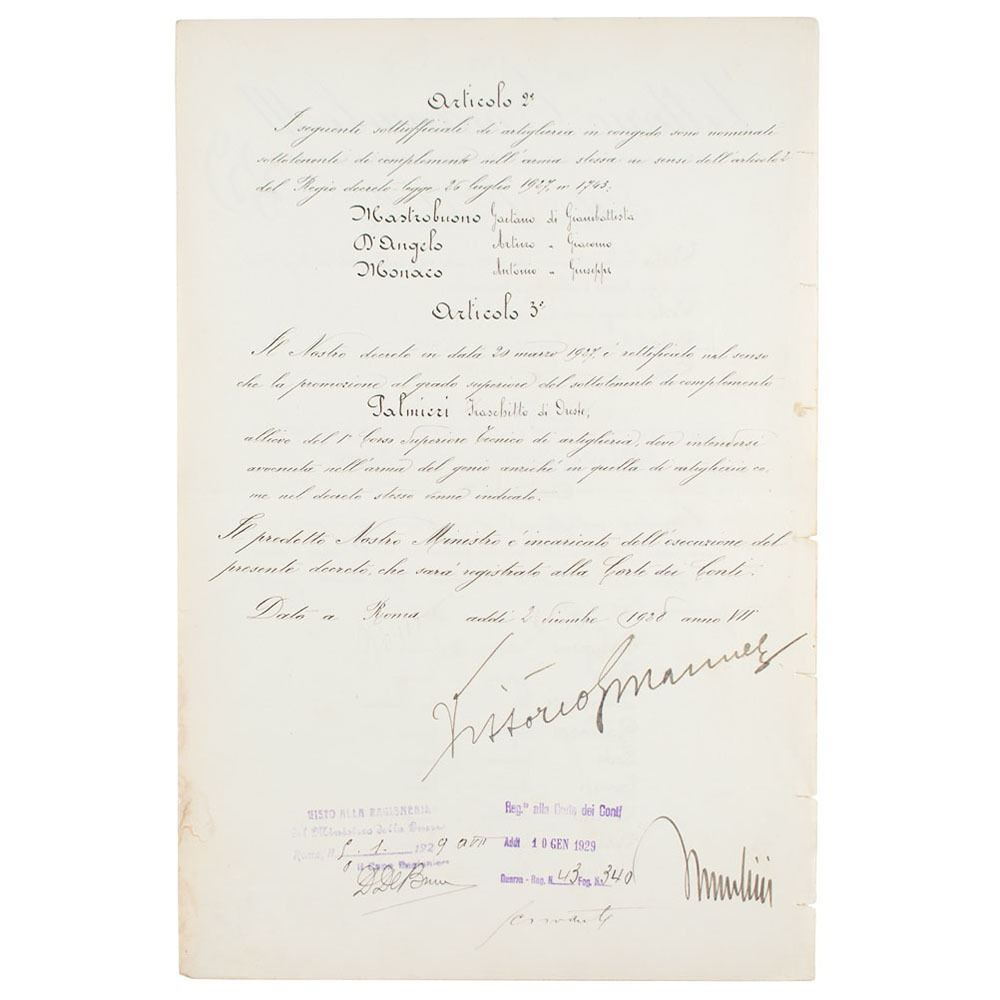 Articolo 2º
I seguenti sottufficiali di artiglieria in congedo sono nominati
sottotenenti di complemento nell'arma stessa ai sensi dell'articolo 2
del Regio decreto-legge 26 luglio 1927, n. 1743:
Mastrobuono Gaetano di Giambattista
D'Angelo Arturo " Giacomo
Monaco Antonio " Giuseppe
Articolo 3º
Il Nostro decreto in data 20 marzo 1927, è rettificato nel senso
che la promozione al grado superiore del sottotenente di complemento
Palmieri di Oreste,
allievo del 1º Corso Superiore Tecnico di artiglieria, deve intendersi
avvenuta nell'arma del genio anziché in quella di artiglieria co,
me nel decreto stesso venne indicato.
Il predetto Nostro Ministro é incaricato dell'esecuzione del
presente decreto, che sará registrato alla Corte dei Conti.
Dato a Roma addì 2 dicembre 1928 anno VII
Vittorio Emanuele
VISTO ALLA RAGIONERIA
del Ministero della Guerra
Roma, il 5.1. 1929 a VII
Il Capo Ragioniere
Reg.to alla Corte dei Conti
Addì 10 GEN 1929
Guerra - Reg. N. 43 Fog. N. 340
Mussolini